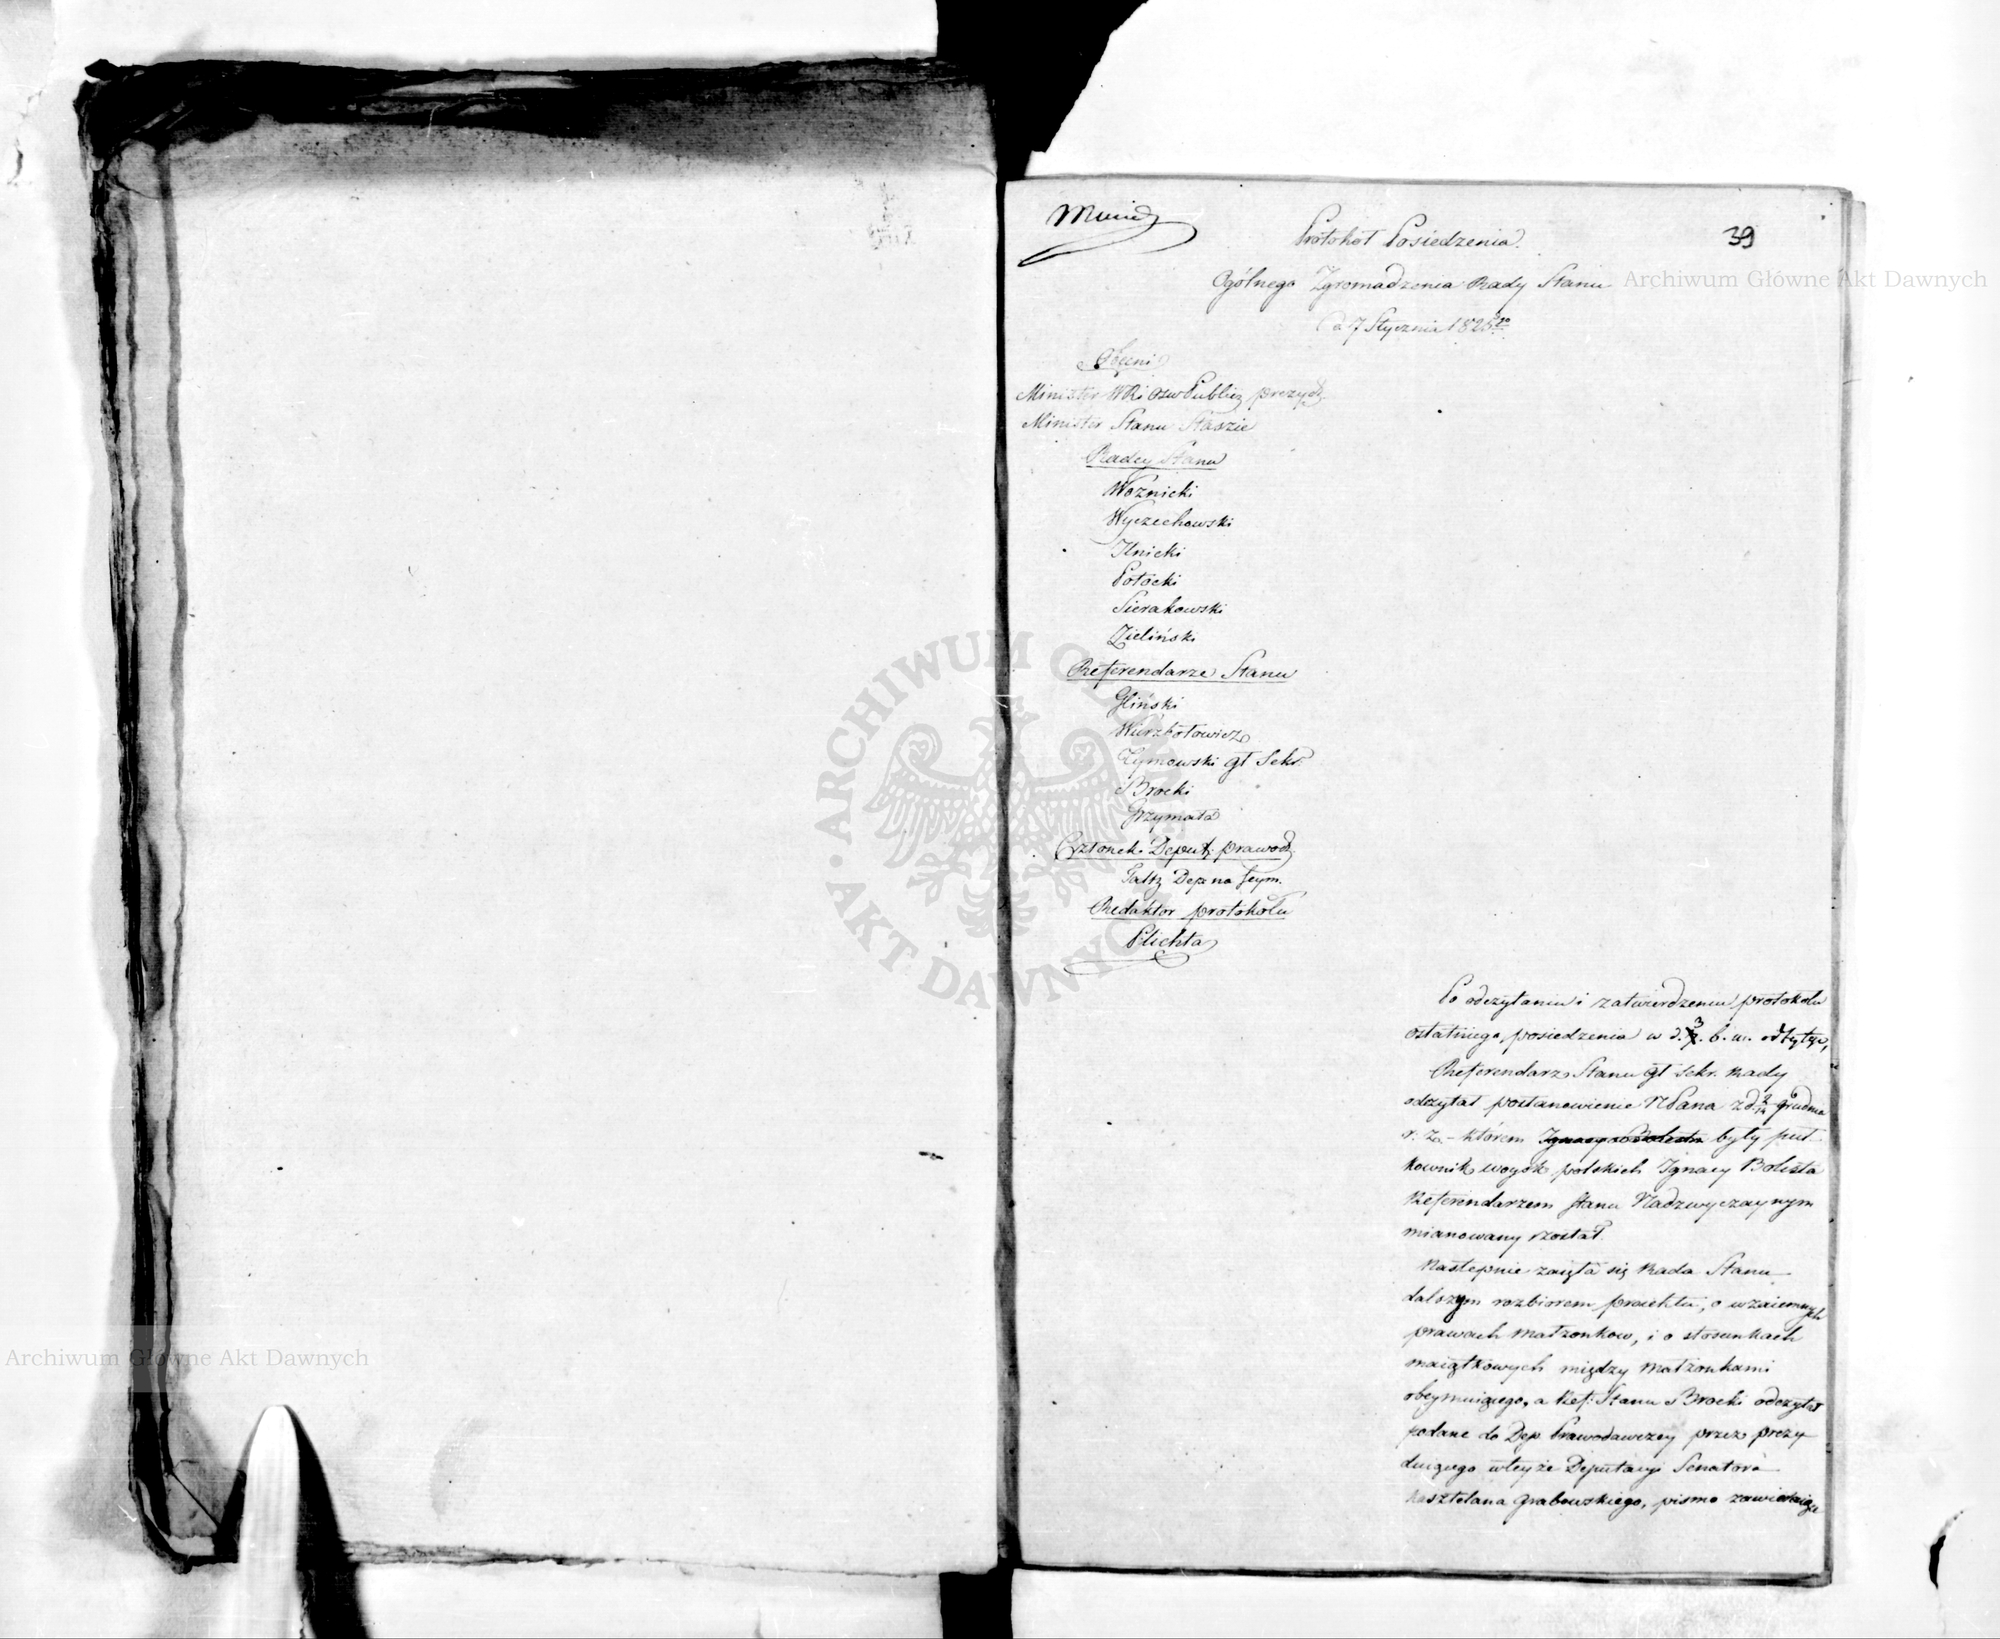 39
Protokół Posiedzenia
Ogólnego Zgromadzenia Rady Stanu
d 7 Stycznia 1825 go
Archiwum Główne Akt Dawnych
Obecni
Minister WR i Ośw Public prezyd.
Minister Stanu Staszic
Radcy Stanu
Woźnicki
Wyczechowski
Ilnicki
Potocki
Sierakowski
Zieliński
Referendarze Stanu
Gliński
Wierzbołowicz
Żymowski gł Sekr.
Brocki
Grzymała
Członek Deput. prawod.
Faltz Dep na Seym.
Redaktor protokołu
Plichta
ARCHIWUM GŁÓWNE AKT DAWNYCH
Po odczytaniu i zatwierdzeniu protokołu
ostatniego posiedzenia w d. 3. b. m. odbytego,
Referendarz Stanu gł Sekr. Rady
odczytał postanowienie NPana z d. 2/14 grudnia
r. z. – którem były puł
kownik woysk polskich Ignacy Bolesta
Referendarzem Stanu Nadzwyczaynym
mianowany został.
Następnie zaięła się Rada Stanu
dalszym rozbiorem proiektu, o wzaiemnych
prawach małżonkow, i o stosunkach
maiątkowych między małżonkami
obeymuiącego, a Ref: Stanu Brocki odczytał
podane do Dep. Prawodawczey przez prezy
duiącego w teyże Deputacyi Senatora
Kasztelana Grabowskiego, pismo zawieraiące
Archiwum Główne Akt Dawnych